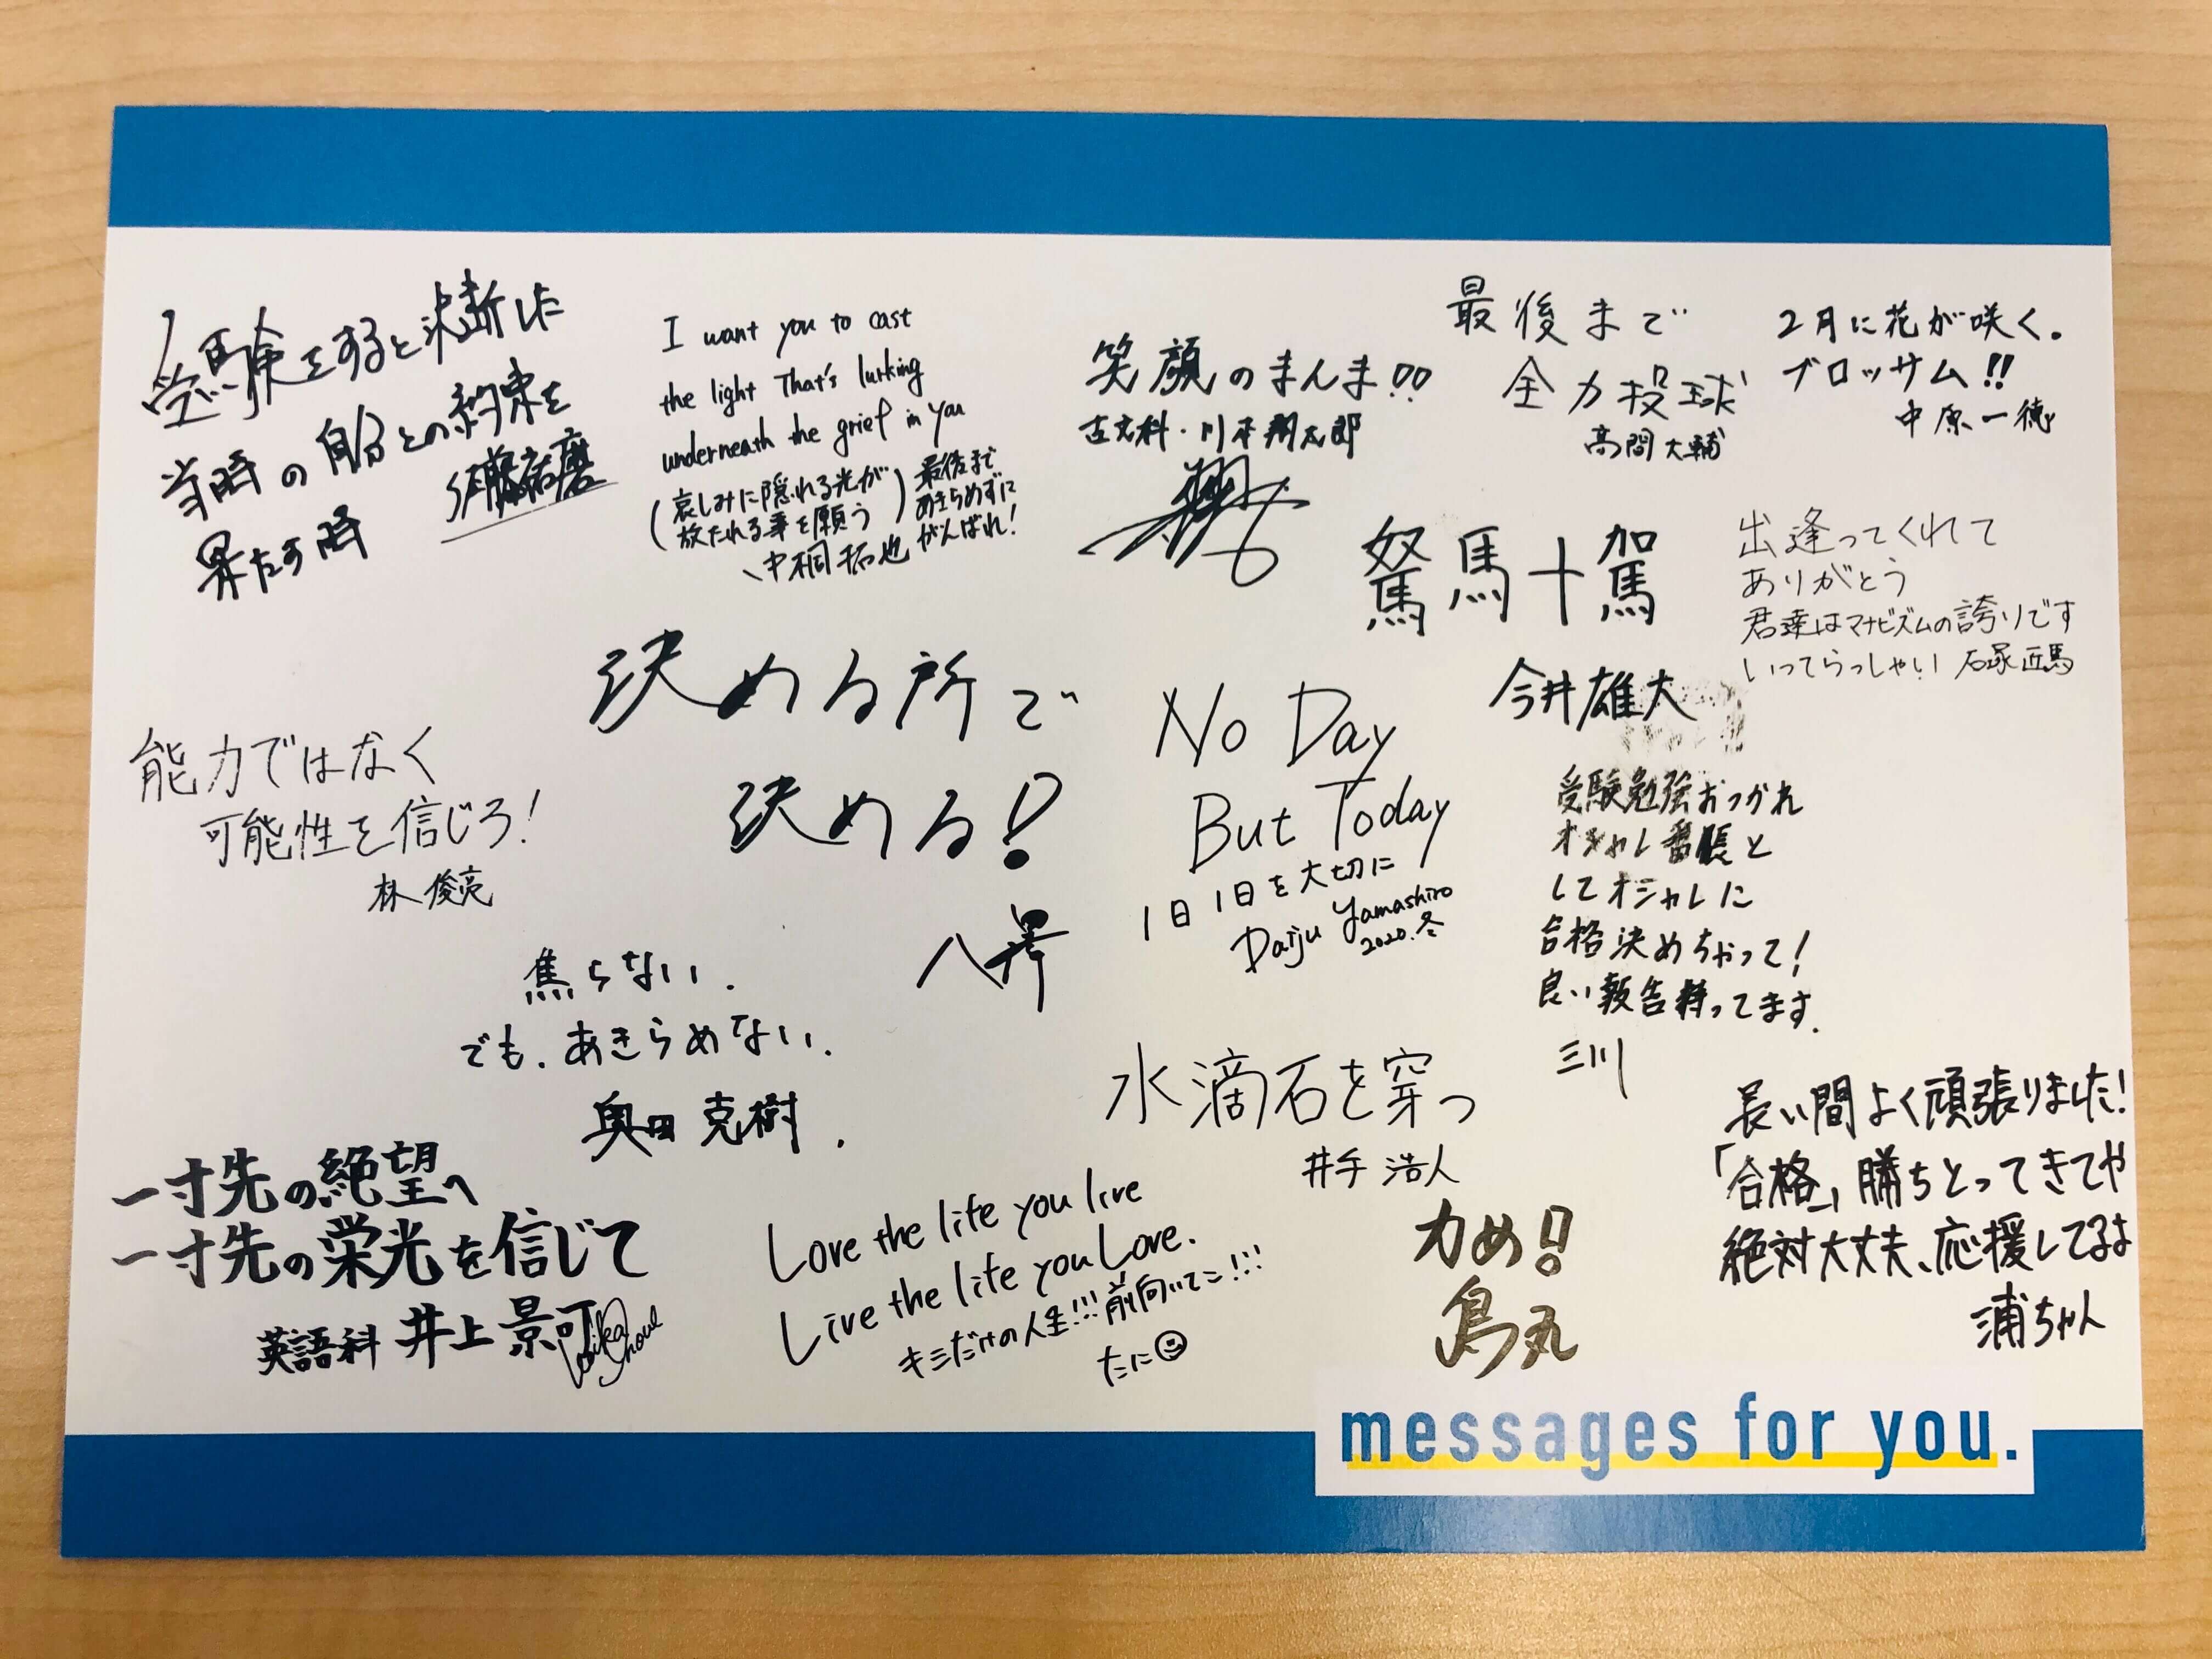 受験をすると決断した
当時の自分との約束を
果たす時
佐藤祐磨
I want you to cast
the light That's lurking
underneath the grief in you
(哀しみに隠れる光が
放たれる事を願う)
最後まで
あきらめずに
がんばれ!
中桐拓也
笑顔のまんま!!
古文科・川本翔太郎
最後まで
全力投球
高間大輔
2月に花が咲く.
ブロッサム!!
中原一徳
駑馬十駕
今井雄大
出逢ってくれて
ありがとう
君達はマナビズムの誇りです
いってらっしゃい 石塚匠馬
決める所で
決める!
八澤
能力ではなく
可能性を信じろ!
林俊亮
No Day
But Today
1日1日を大切に
Daiju Yamashiro
2020.冬
受験勉強おつかれ
オシャレ番長と
してオシャレに
合格決めちゃって!
良い報告待ってます.
三川
焦らない.
でも.あきらめない.
奥田克樹.
水滴石を穿つ
井手浩人
長い間よく頑張りました!
「合格」勝ちとってきてや
絶対大丈夫、応援してるよ
浦ちゃん
一寸先の絶望へ
一寸先の栄光を信じて
英語科 井上景可
Love the life you live
Live the life you Love.
キミだけの人生!!!前向いてこ!!!
たに
力め!!
烏丸
messages for you.